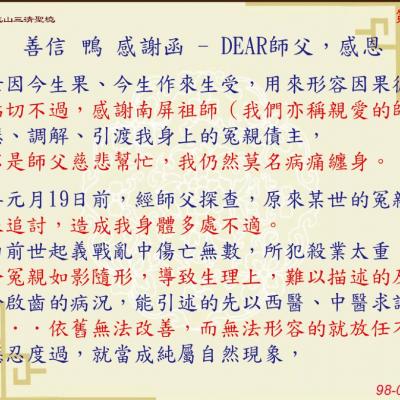 山三清聖境
善信 鴨 感謝函 - DEAR師父，感恩
因今生果、今生作來生受，用來形容因果
切不過，感謝南屏祖師（我們亦稱親愛的師
、調解、引渡我身上的冤親債主，
是師父慈悲幫忙，我仍然莫名病痛纏身。
元月19日前，經師父探查，原來某世的冤
追討，造成我身體多處不適。
前世起義戰亂中傷亡無數，所犯殺業太重
冤親如影隨形，導致生理上，難以描述的及
啟齒的病況，能引述的先以西醫、中醫求
．．依舊無法改善，而無法形容的就放任
忍度過，就當成純屬自然現象，
98-0